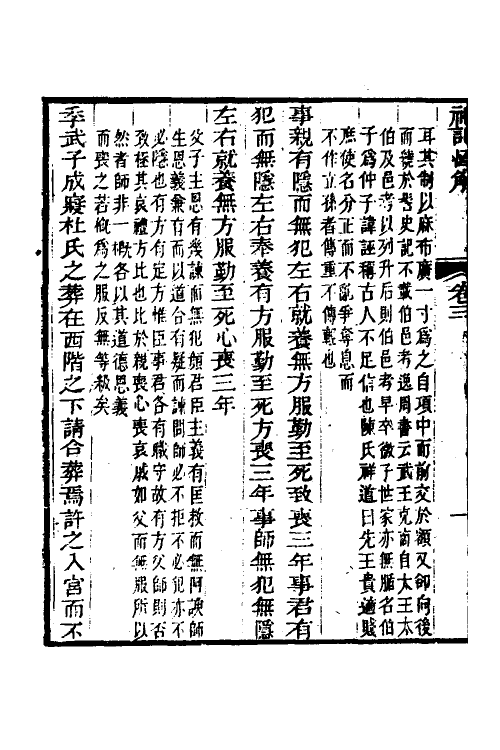 耳其制以麻布廣一寸爲之自項中而前交於額又卻向後
而繞於髻史記不載伯邑考逸周書云武王克商自大王太
伯及邑考以列升后則伯邑考早卒微子世家亦無腯名伯
子爲仲子諱誣稱古人不足信也陳氏祥道曰先王貴適賤
庶使名分正而不亂爭奪息而
不作立孫者傳重不傳輕也
事親有隱而無犯左右就養無方服勤至死致喪三年事君有
犯而無隱左右奉養有方服勤至死方喪三年事師無犯無隱
左右就養無方服勤至死心喪三年
父子主恩有幾諫而無犯顏君臣主義有匡救而無阿諛師
生恩義兼有而以道合有疑而諫問師必不拒不必犯亦不
必隱也有方有定方惟臣事君各有職守故有方父師則否
致極其哀禮方比也比於親喪心喪哀戚如父而無服所以
然者師非一概各以其道德恩義
而喪之若槪爲之服反無等殺矣
季武子成寢杜氏之葬在西階之下請合葬焉許之入宮而不
卷三